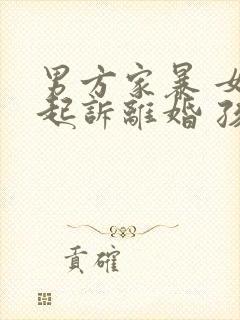 男方家暴 女
起訴離婚 孩
貢確